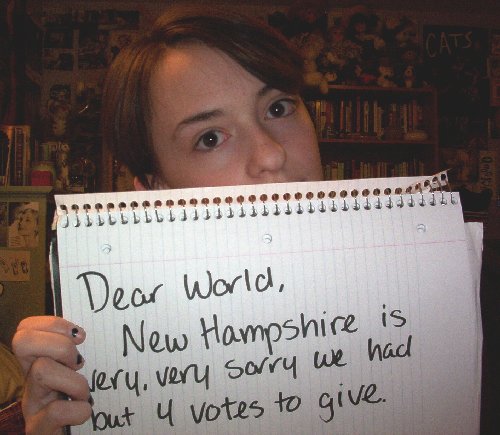 CATS
Dear World,
New Hampshire is
very, very sorry we had
but 4 votes to give.